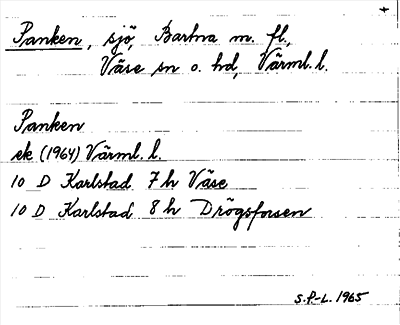 Panken, sjö, Bartna m. fl.,
Väse sn o. hd, Värml. l.
Panken
ek (1964) Värml. l.
10 D Karlstad 7 h Väse
10 D Karlstad 8 h Drögsforsen
S.P-L. 1965